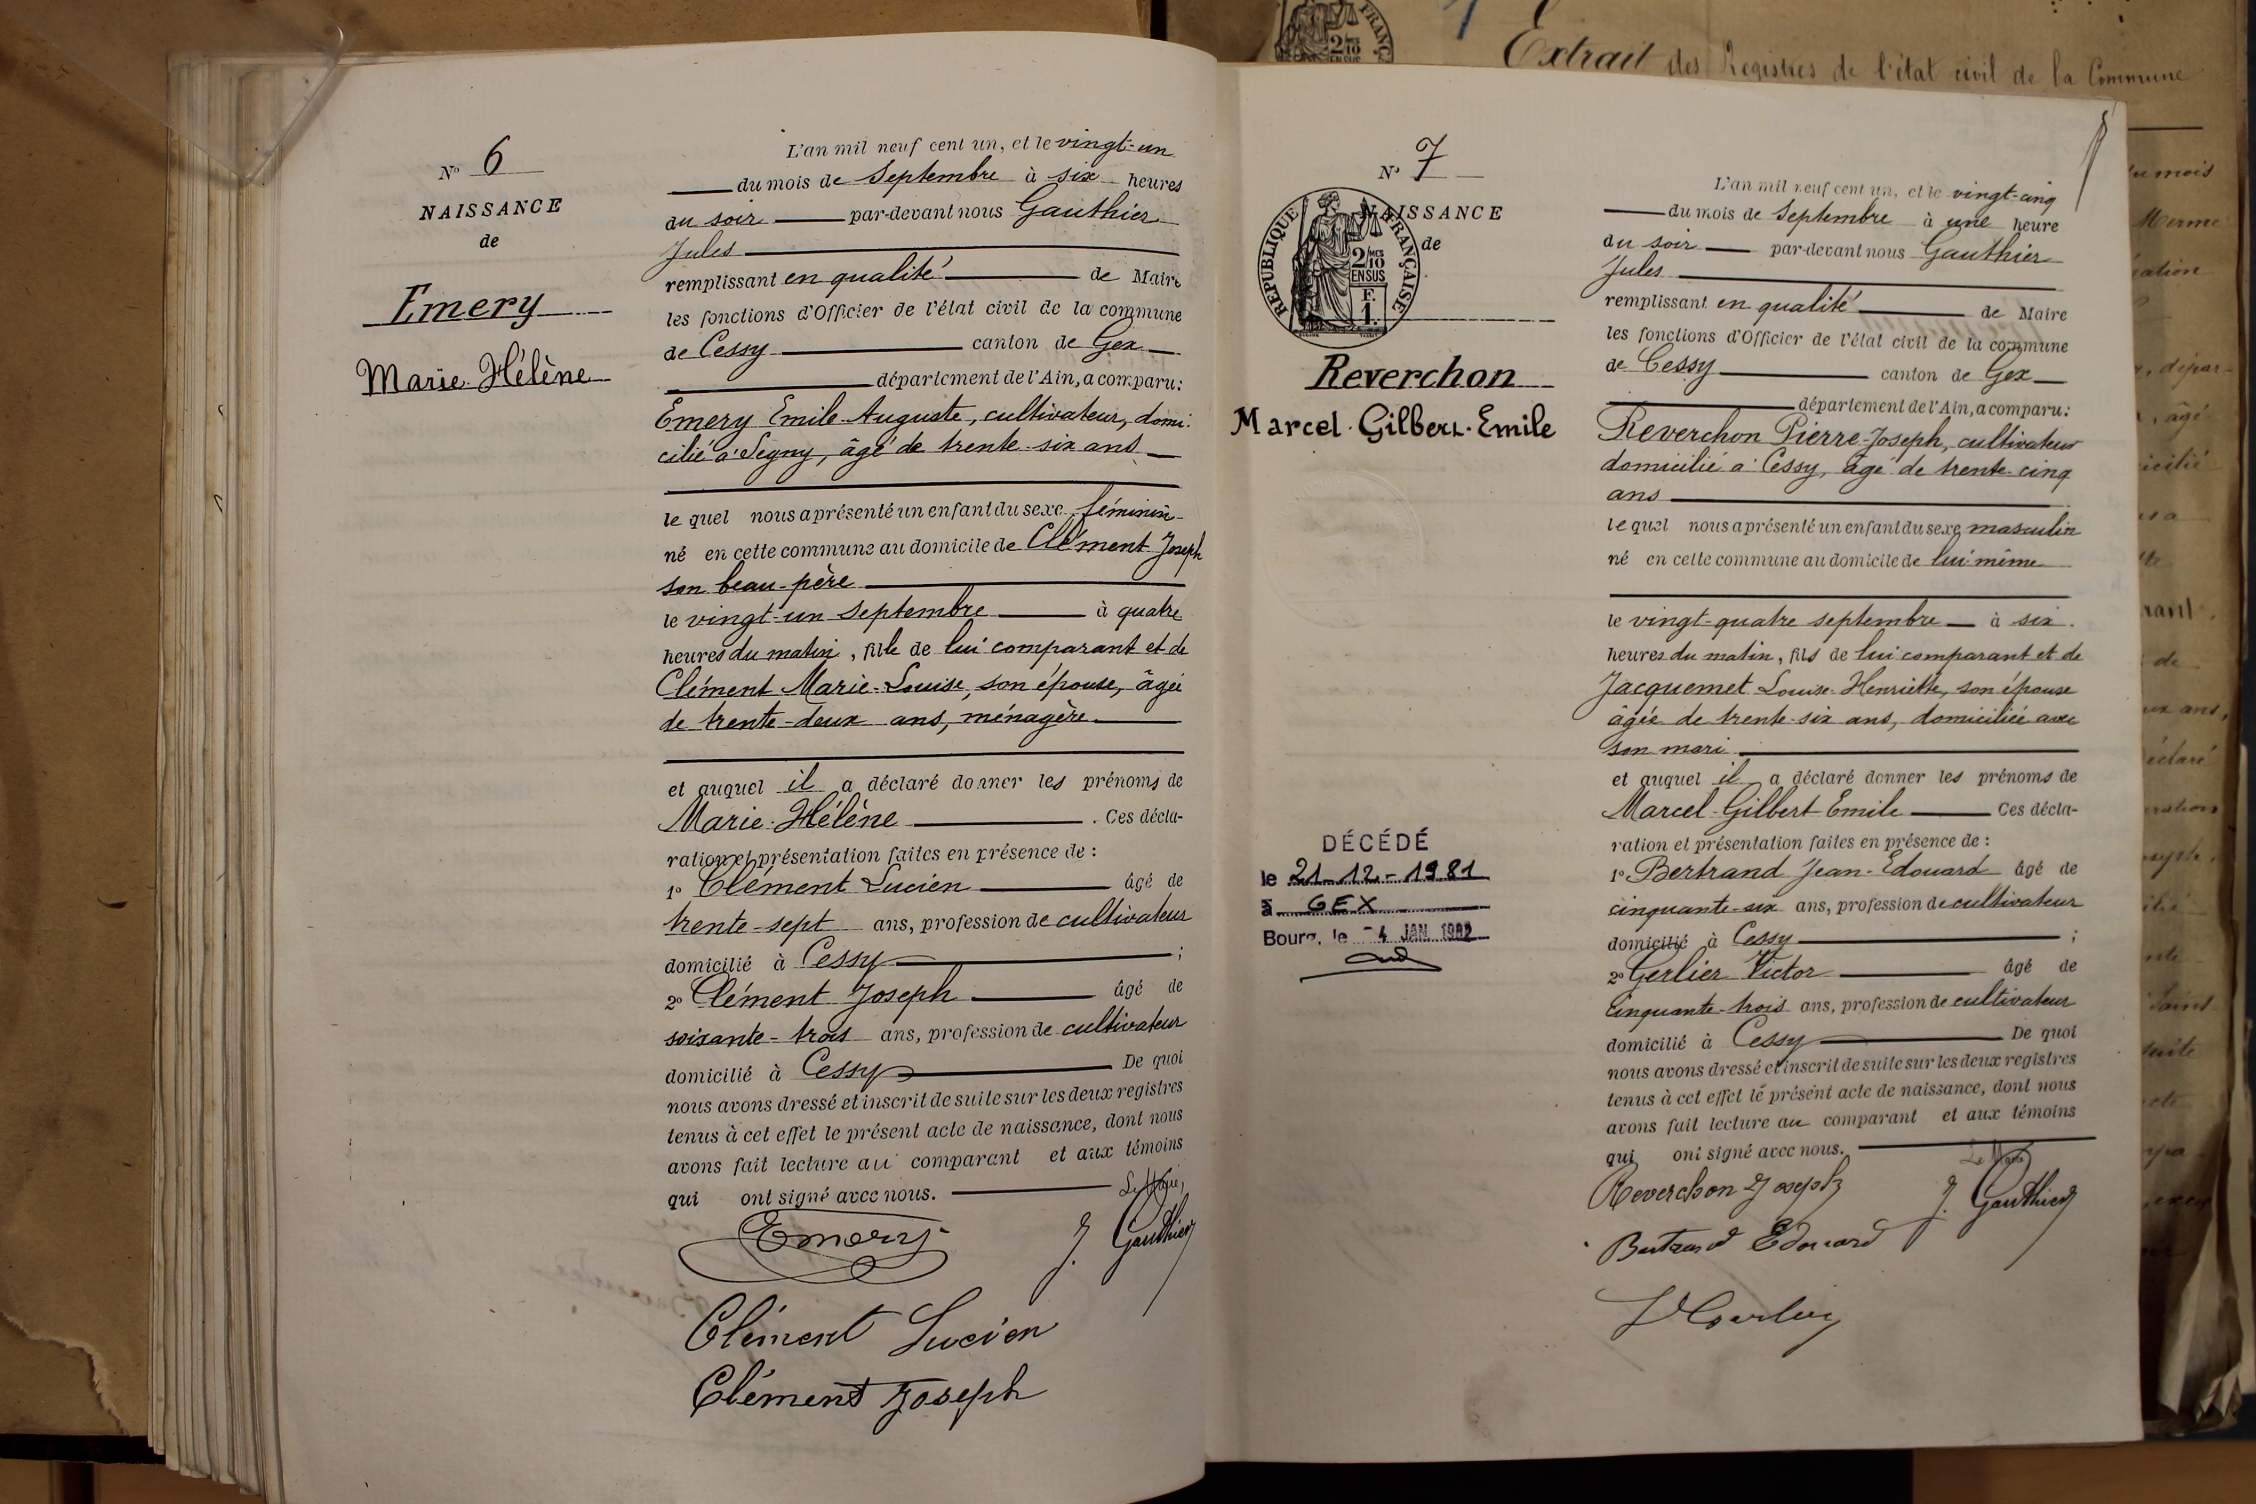 Nº 6
NAISSANCE
de
Emery
Marie-Hélène
L'an mil neuf cent un, et le vingt-un
du mois de Septembre à six heures
du soir par-devant nous Gauthier
Jules
remplissant en qualité de Maire
les fonctions d'Officier de l'état civil de la commune
de Cessy canton de Gex
département de l'Ain, a comparu:
Emery Emile-Auguste, cultivateur, domi-
cilié à Segny, âgé de trente-six ans
le quel nous a présenté un enfant du sexe féminin
né en cette commune au domicile de Clément Joseph
son beau-père
le vingt-un Septembre à quatre
heures du matin, fille de lui comparant et de
Clément Marie-Louise, son épouse, âgée
de trente-deux ans, ménagère.
et auquel il a déclaré donner les prénoms de
Marie-Hélène . Ces décla-
ration et présentation faites en présence de :
1º Clément Lucien âgé de
trente-sept ans, profession de cultivateur
domicilié à Cessy ;
2º Clément Joseph âgé de
soixante-trois ans, profession de cultivateur
domicilié à Cessy De quoi
nous avons dressé et inscrit de suite sur les deux registres
tenus à cet effet le présent acte de naissance, dont nous
avons fait lecture au comparant et aux témoins
qui ont signé avec nous. Le Maire,
Emery J. Gauthier
Clément Lucien
Clément Joseph
Extrait des Registres de l'état civil de la Commune
Nº 7
NAISSANCE
de
RÉPUBLIQUE FRANÇAISE
2/10
EN SUS
F.
1.
Reverchon
Marcel-Gilbert-Emile
DÉCÉDÉ
le 21-12-1981
à GEX
Bourg, le -4 JAN 1982
L'an mil neuf cent un, et le vingt-cinq
du mois de Septembre à une heure
du soir par-devant nous Gauthier
Jules
remplissant en qualité de Maire
les fonctions d'Officier de l'état civil de la commune
de Cessy canton de Gex
département de l'Ain, a comparu:
Reverchon Pierre-Joseph, cultivateur
domicilié à Cessy, âgé de trente-cinq
ans
le quel nous a présenté un enfant du sexe masculin
né en cette commune au domicile de lui-même
le vingt-quatre septembre à six
heures du matin, fils de lui comparant et de
Jacquemet Louise-Henriette, son épouse
âgée de trente-six ans, domiciliée avec
son mari
et auquel il a déclaré donner les prénoms de
Marcel-Gilbert-Emile Ces décla-
ration et présentation faites en présence de :
1º Bertrand Jean-Edouard âgé de
cinquante-six ans, profession de cultivateur
domicilié à Cessy ;
2º Gerlier Victor âgé de
Cinquante-trois ans, profession de cultivateur
domicilié à Cessy De quoi
nous avons dressé et inscrit de suite sur les deux registres
tenus à cet effet le présent acte de naissance, dont nous
avons fait lecture au comparant et aux témoins
qui ont signé avec nous.
Le Maire
Reverchon Joseph J. Gauthier
Bertrand Edouard